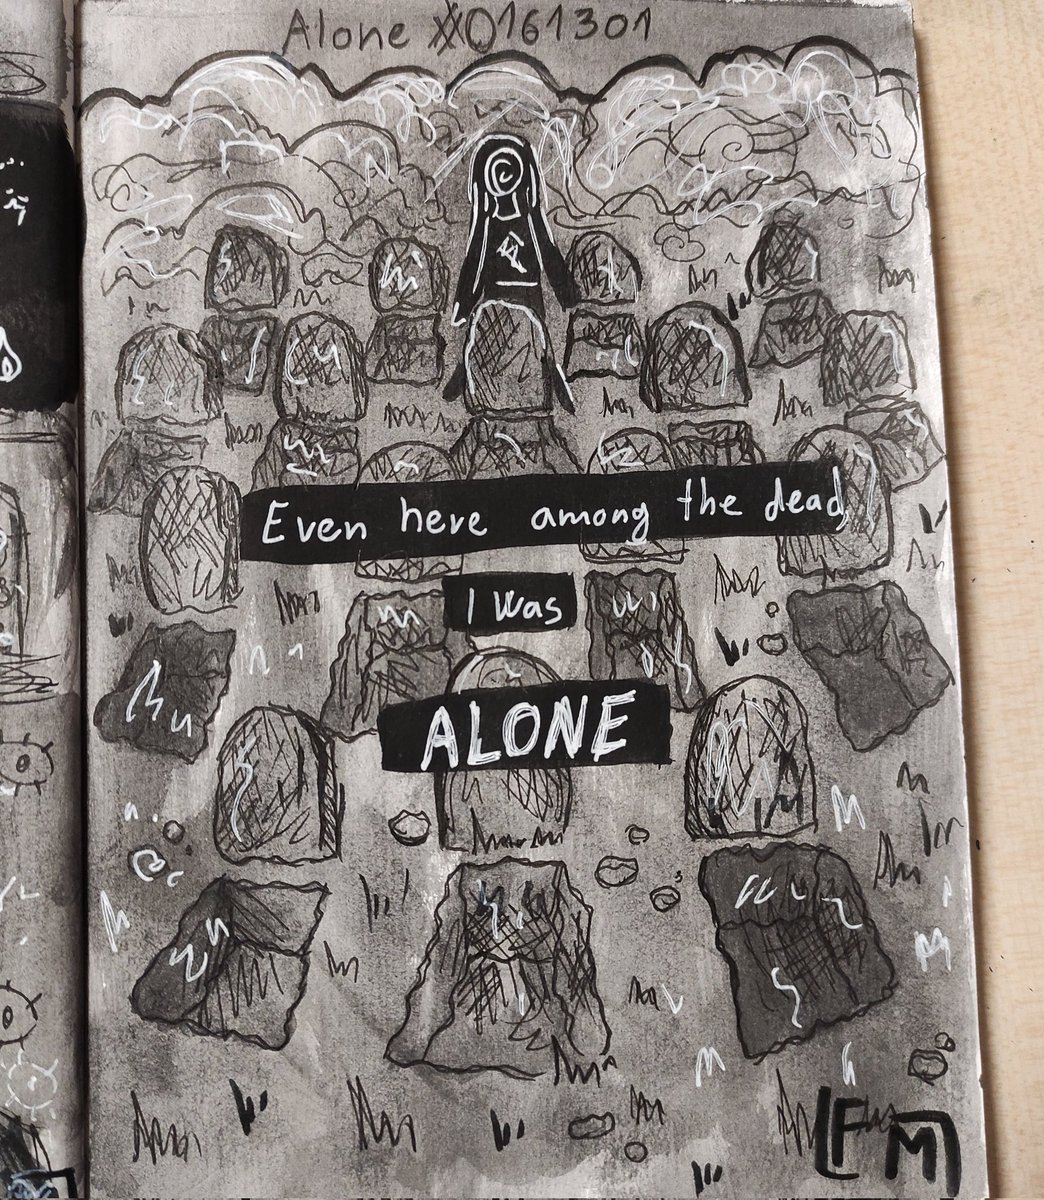 Alone 0161301
Even here among the dead
I was
ALONE
FM